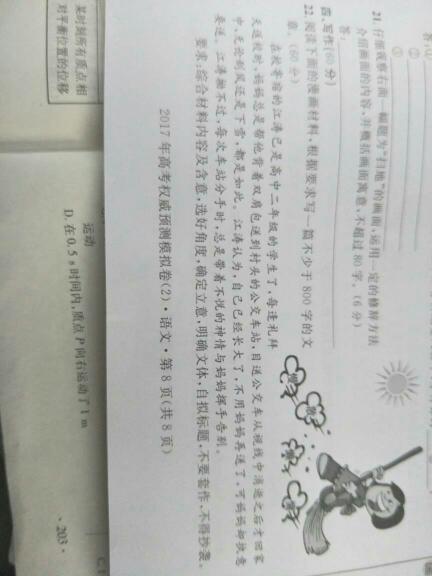 答:①
②
③
21. 仔细观察右面一幅题为“扫地”的画面,运用一定的修辞方法
介绍画面的内容,并概括画面寓意,不超过 80 字。(6 分)
答:
四、写作(60 分)
22. 阅读下面的漫画材料,根据要求写一篇不少于 800 字的文
章。(60 分)
在校寄宿的江涛已是高中二年级的学生了,每逢礼拜
天返校时,妈妈总是帮他背着双肩包送到村头的公交车站,目送公交车从视线中消逝之后才回家
中,无论刮风还是下雪,都是如此。江涛认为,自己已经长大了,不用妈妈再送了,可妈妈却执意
要送。江涛拗不过,每次车站分手时,总是带着不悦的神情与妈妈挥手告别。
要求:综合材料内容及含意,选好角度,确定立意,明确文体,自拟标题,不要套作,不得抄袭。
2017 年高考权威预测模拟卷(2)·语文·第 8 页(共 8 页)
某时刻所有质点相
对平衡位置的位移
运动
D. 在 0.5 s 时间内,质点 P 向右运动了 1 m
· 203 ·